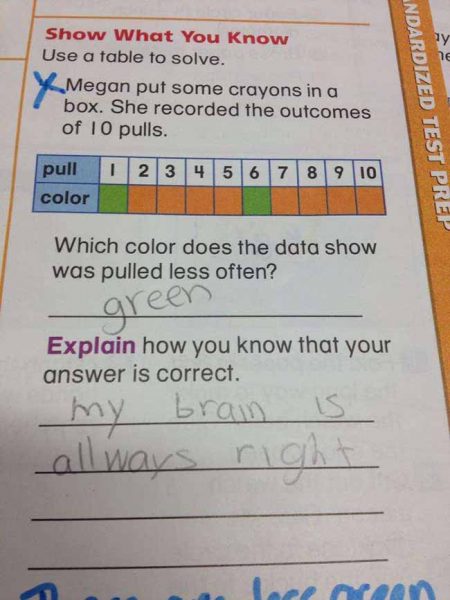 Show What You Know
Use a table to solve.
X
Megan put some crayons in a
box. She recorded the outcomes
of 10 pulls.
pull 1 2 3 4 5 6 7 8 9 10
color
Which color does the data show
was pulled less often?
green
Explain how you know that your
answer is correct.
my brain is
allways right
less green
NDARDIZED TEST PREP